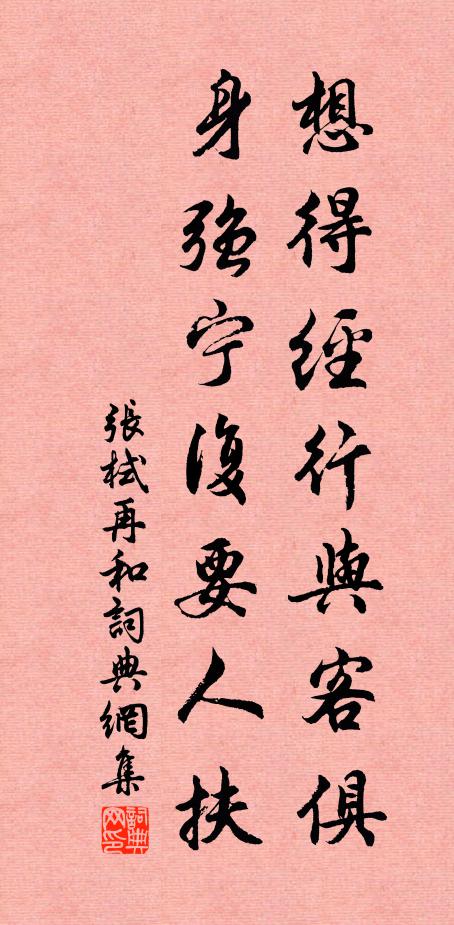 想得經行與客俱
身強宁復要人扶
張栻再和詞典網集
詞典网印